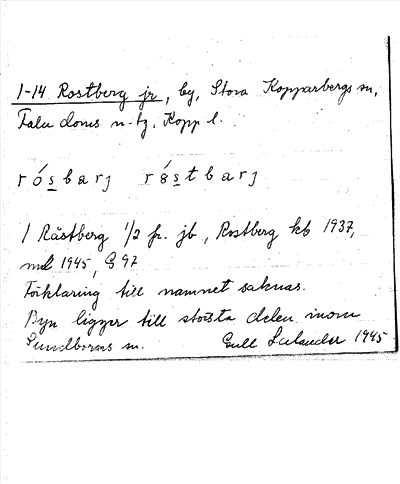 1-14 Rostberg jr, by, Stora Kopparbergs sn,
Falu doms n. tg. Kopp l.
rósbarj róstbarj
1 Råstberg 1/2 fr. jb, Rostberg kb 1937,
1945, G 97
Förklaring till namnet saknas.
Byn ligger till största delen inom
Sundborns sn. 1945